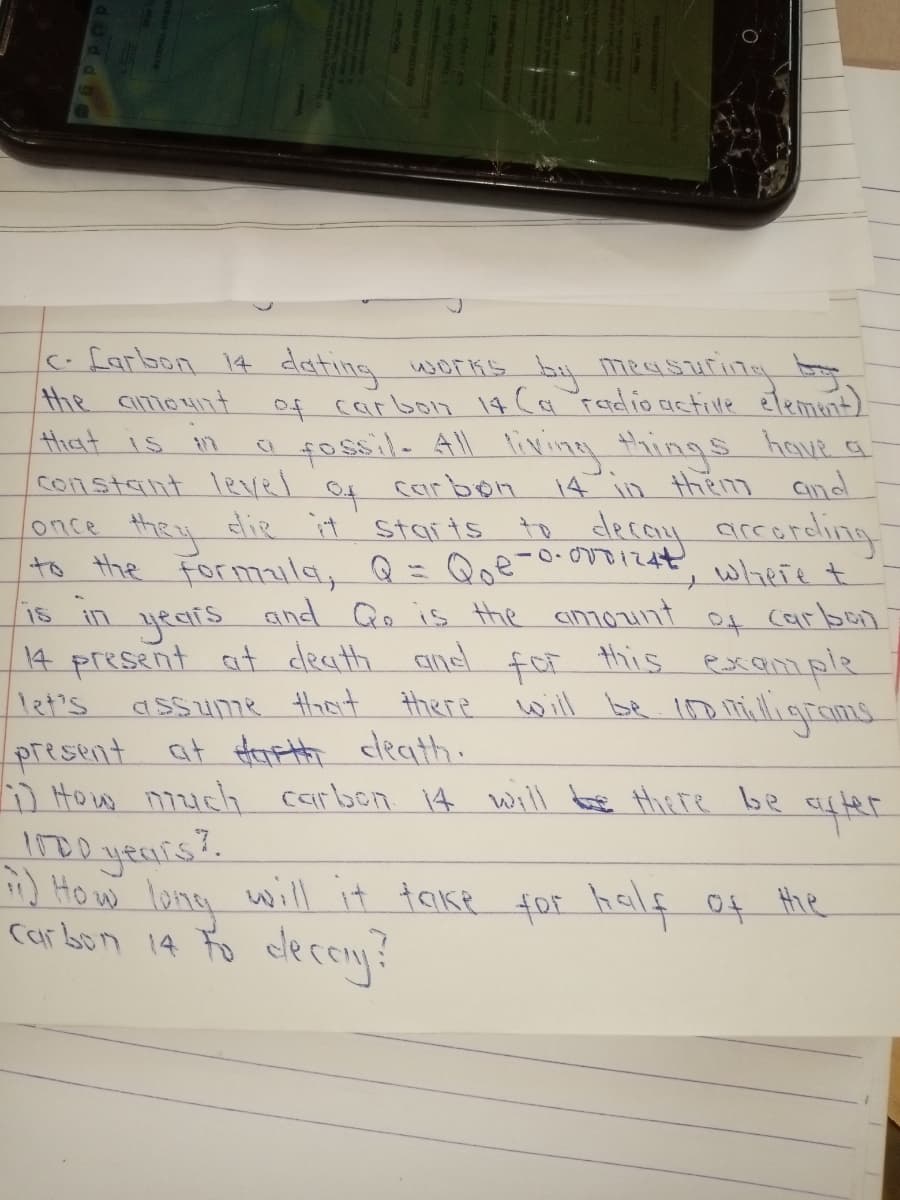 c. Carbon 14 dating works by measuring by
the amount of carbon 14 (a radioactive element)
that is in a fossil. All living things have a
constant level of carbon 14 in them and
once they die it starts to decay according
to the formula, Q = Q₀e^-0.000124t, where t
is in years and Q₀ is the amount of carbon
14 present at death and for this example
let's assume that there will be 100 milligrams
present at death.
i) How much carbon 14 will be there be after
1000 years?.
ii) How long will it take for half of the
carbon 14 to decay?